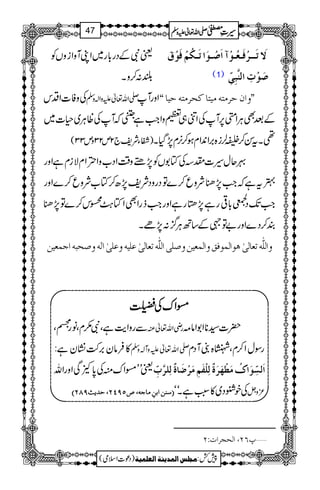 سیرتِ مصطفی صلی اللہ تعالیٰ علیہ وسلم 47
لَا تَرْفَعُوْۤا اَصْوَاتَكُمْ فَوْقَ صَوْتِ النَّبِیِّ (۱) یعنی نبی کے دربار میں اپنی آوازوں کو
بلند نہ کرو۔
”وان حرمته میتا کحرمته حیا“ اور آپ صلی اللہ تعالیٰ علیہ وسلم کی وفات اقدس
کے بعد بھی ہر امتی پر آپ کی اتنی ہی تعظیم واجب ہے جتنی کہ آپ کی ظاہری حیات میں
تھی۔ یہ سن کر خلیفہ لرزہ براندام ہو کر نرم پڑ گیا۔ (شفاء شریف ج۲ ص۳۲ و ص۳۳)
بہرحال سیرت مقدسہ کی کتابوں کو پڑھتے وقت ادب و احترام لازم ہے اور
بہتر یہ ہے کہ جب پڑھنا شروع کرے تو درود شریف پڑھ کر کتاب شروع کرے اور
جب تک دلجمعی باقی رہے پڑھتا رہے اور جب ذرا بھی اکتاہٹ محسوس کرے تو پڑھنا
بند کر دے اور بے توجہی کے ساتھ ہرگز نہ پڑھے۔
واللّٰہ تعالیٰ ھو الموفق والمعین وصلی اللّٰہ تعالیٰ علیہ وعلیٰ اٰلہ وصحبہ اجمعین
مسواک کی فضیلت
حضرت سیدنا ابوامامہ رضی اللہ تعالیٰ عنہ سے روایت ہے، نبی مکرم، نورِ مجسم،
رسول اکرم، شہنشاہ بنی آدم صلی اللہ تعالیٰ علیہ واٰلہٖ وسلم کا فرمان برکت نشان ہے:
اَلسِّوَاكُ مَطْهَرَةٌ لِلْفَمِ مَرْضَاةٌ لِلرَّبِّ یعنی ”مسواک منہ کی پاکیزگی اور اللہ
عزوجل کی خوشنودی کا سبب ہے۔“ (سنن ابن ماجه، ص ۲۴۹۵، حدیث ۲۸۹)
پ۲۶، الحجرات:۲
پیش کش: مجلس المدینة العلمیة (دعوتِ اسلامی)